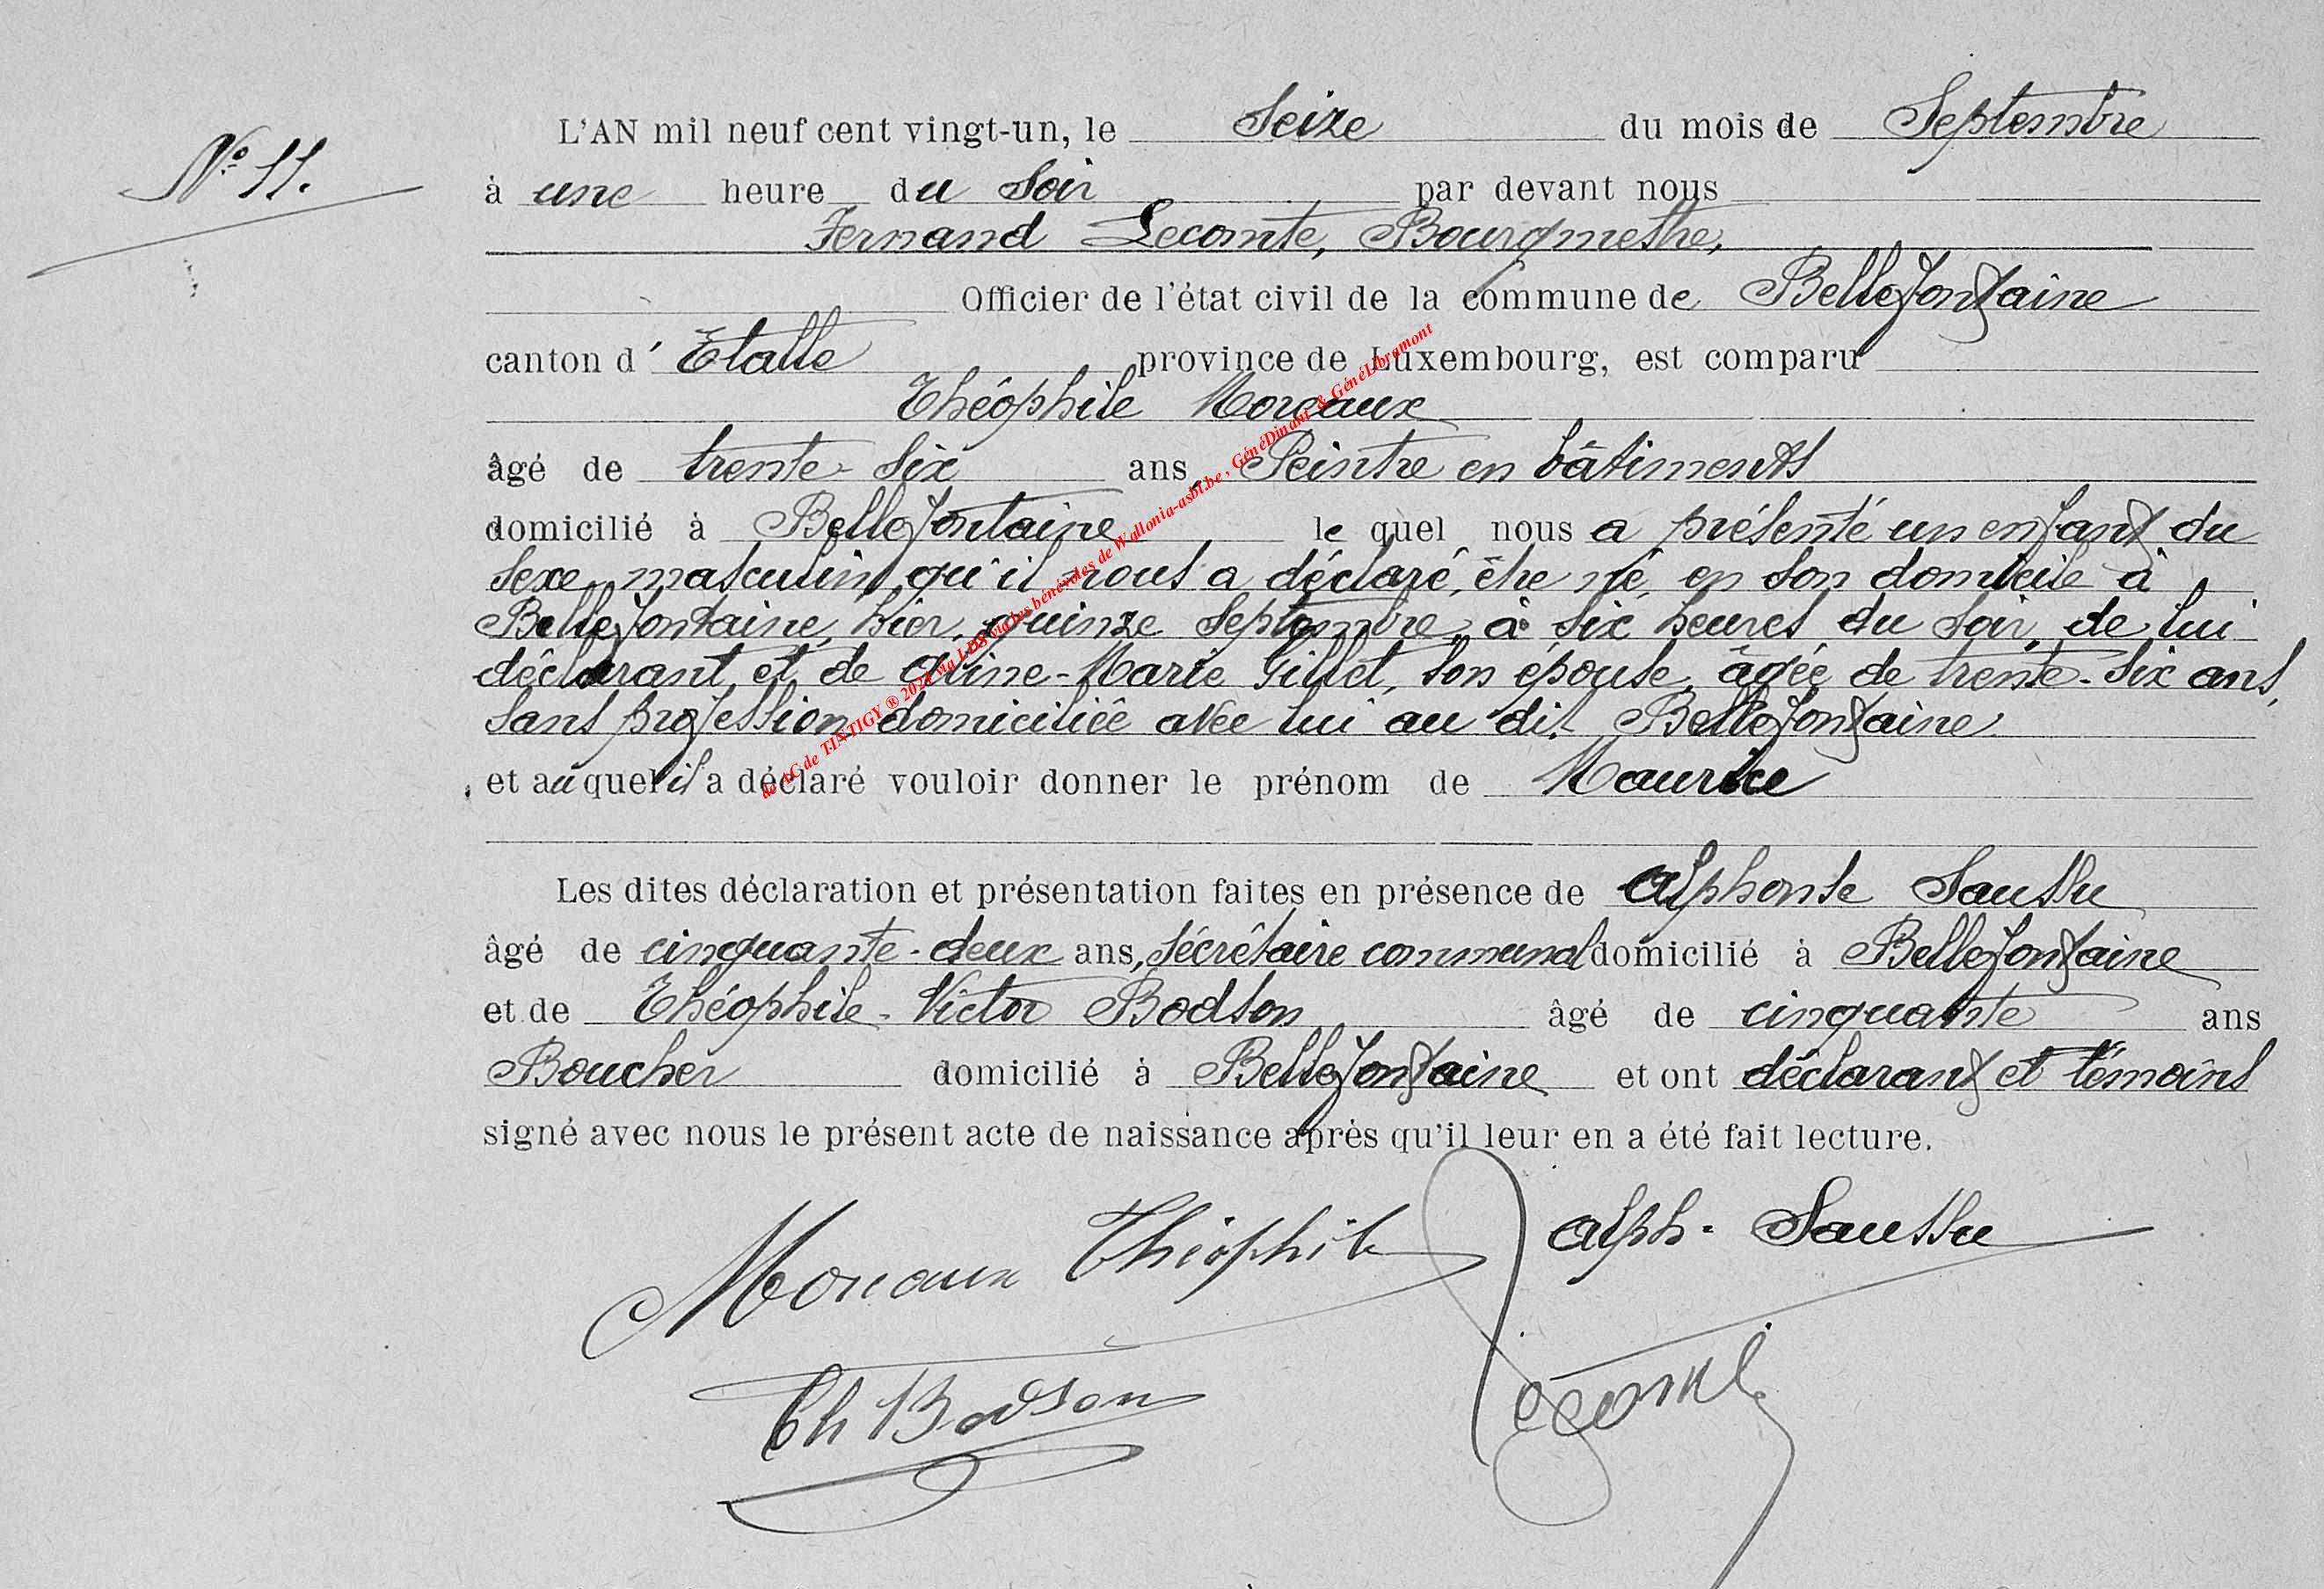 N° 11.
L'AN mil neuf cent vingt-un, le Seize du mois de Septembre
à une heure du Soir par devant nous
Fernand Lecomte, Bourgmestre,
Officier de l'état civil de la commune de Bellefontaine
canton d' Etalle province de Luxembourg, est comparu
Théophile Moreaux
âgé de trente-six ans, Peintre en bâtiments
domicilié à Bellefontaine le quel nous a présenté un enfant du
sexe masculin, qu'il nous a déclaré, être né, en son domicile à
Bellefontaine, hier, quinze Septembre, à six heures du Soir, de lui
déclarant, et de Marie Gillet, son épouse, âgée de trente-six ans,
sans profession domiciliée avec lui au dit Bellefontaine
et auquel il a déclaré vouloir donner le prénom de Maurice
Les dites déclaration et présentation faites en présence de Alphonse Saussu
âgé de cinquante-deux ans, Sécrétaire communal domicilié à Bellefontaine
et de Théophile-Victor Bodson âgé de cinquante ans
Boucher domicilié à Bellefontaine et ont déclarant et témoins
signé avec nous le présent acte de naissance après qu'il leur en a été fait lecture.
Moreaux Théophile
Alph. Saussu
Th Bodson
Lecomte
de AC de TINTIGY ® 2021 via LDS via les bénévoles de Wallonia-asbl.be, GénéDinant & GénéLibramont